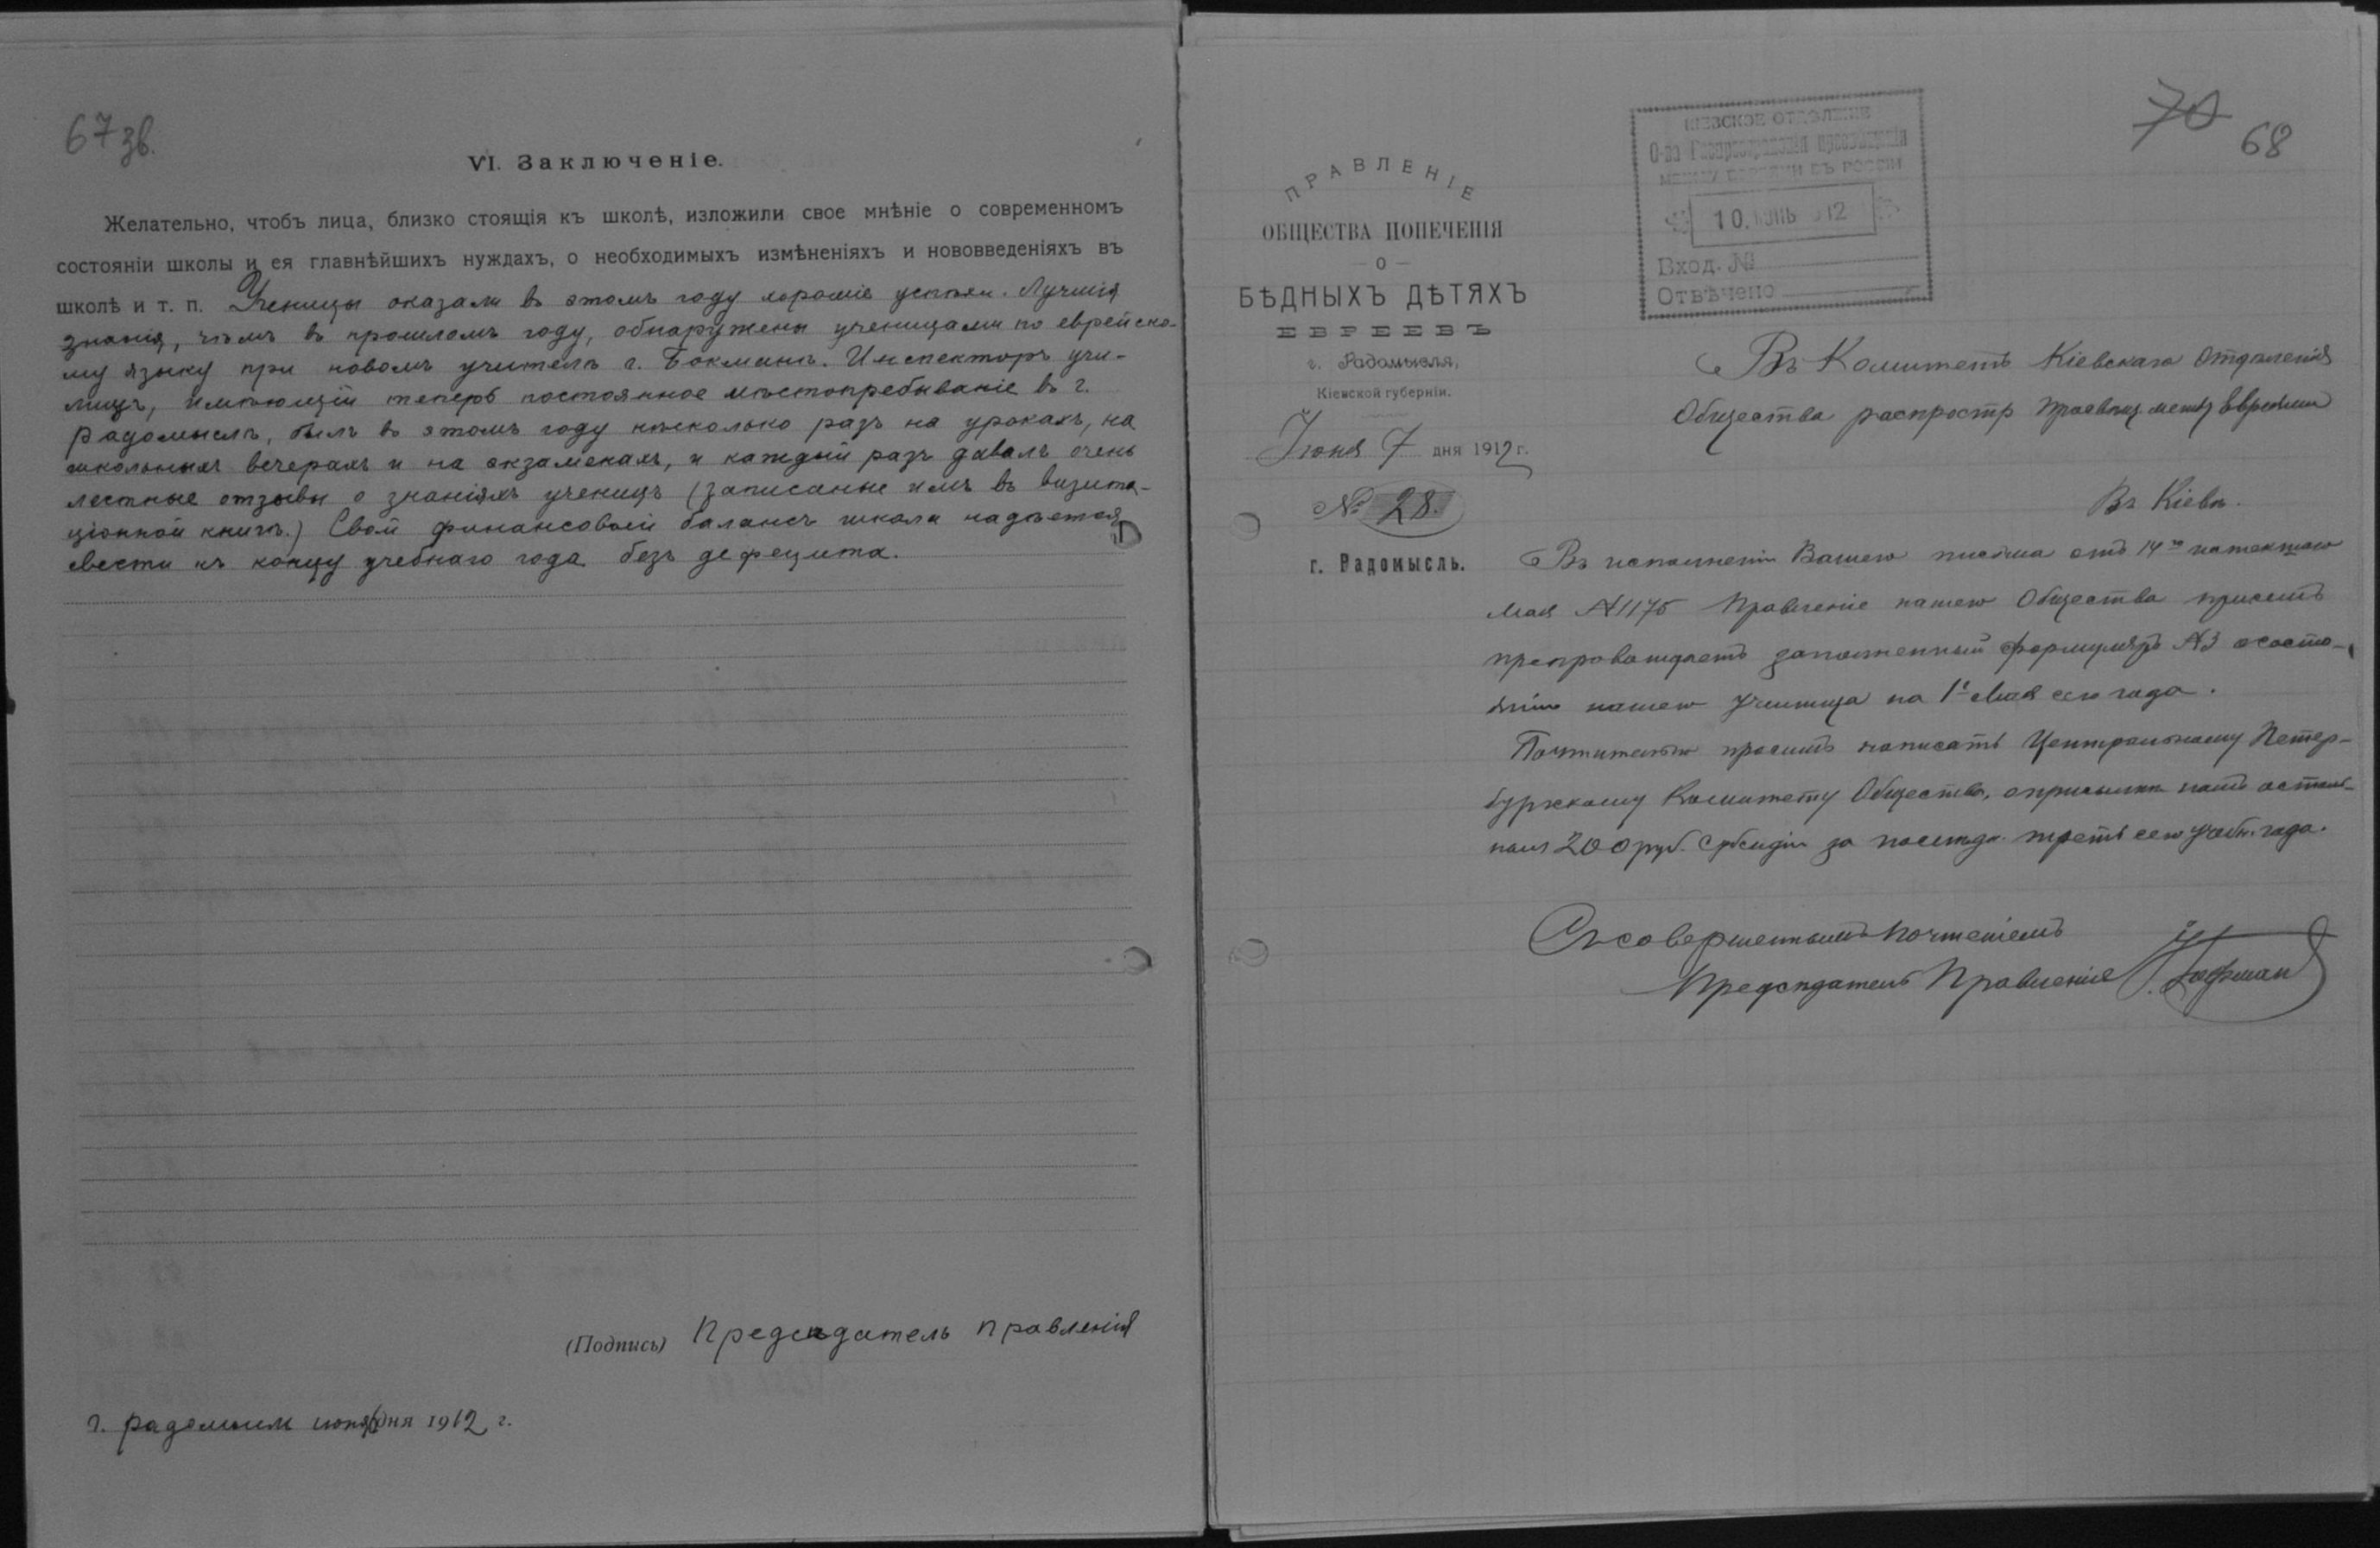 67 зв.
VI. Заключеніе.
Желательно, чтобъ лица, близко стоящія къ школѣ, изложили свое мнѣніе о современномъ
состояніи школы и ея главнѣйшихъ нуждахъ, о необходимыхъ измѣненіяхъ и нововведеніяхъ въ
школѣ и т. п. Ученицы оказали въ этомъ году хорошіе успѣхи. Лучшія
знанія, чѣмъ въ прошломъ году, обнаружены ученицами по еврейско-
му языку при новомъ учителѣ г. Бокманѣ. Инспекторъ учи-
лищъ, имѣющій теперь постоянное мѣстопребываніе въ г.
Радомыслѣ, былъ въ этомъ году нѣсколько разъ на урокахъ, на
школьныхъ вечерахъ и на экзаменахъ, и каждый разъ давалъ очень
лестные отзывы о знаніяхъ ученицъ (записанные имъ въ визита-
ціонной книгѣ.) Свой финансовый балансъ школа надѣется
свести къ концу учебнаго года безъ дефецита.
(Подпись) Предсѣдатель правленія
г. Радомысль іюня дня 1912 г.
70
68
ПРАВЛЕНІЕ
ОБЩЕСТВА ПОПЕЧЕНІЯ
— О —
БѢДНЫХЪ ДѢТЯХЪ
ЕВРЕЕВЪ
г. Радомысля,
Кіевской губерніи.
Іюня 7 дня 1912 г.
№ 28.
г. Радомысль.
КІЕВСКОЕ ОТДѢЛЕНІЕ
О-ва Распространенія просвѣщенія
МЕЖДУ ЕВРЕЯМИ ВЪ РОССІИ
10. ІЮНЬ 912
Вход. №
Отвѣчено
Въ Комитетъ Кіевскаго Отдѣленія
Общества распростр просвѣщ между Евреями
Въ Кіевѣ.
Въ исполненіи Вашего письма отъ 14го истекшаго
Мая №1175 Правленіе нашего Общества при семъ
препровождаетъ заполненный формуляръ №3 о состо-
яніи нашего Училища на 1е Мая сего года.
Почтительно проситъ написать Центральному Петер-
буржкому Комитету Общества, о присылкѣ намъ осталь-
ныхъ 200 руб. Субсидіи за послѣдн. треть сего учебн. года.
Съ совершеннымъ почтеніемъ
Предсѣдатель Правленія Гофман